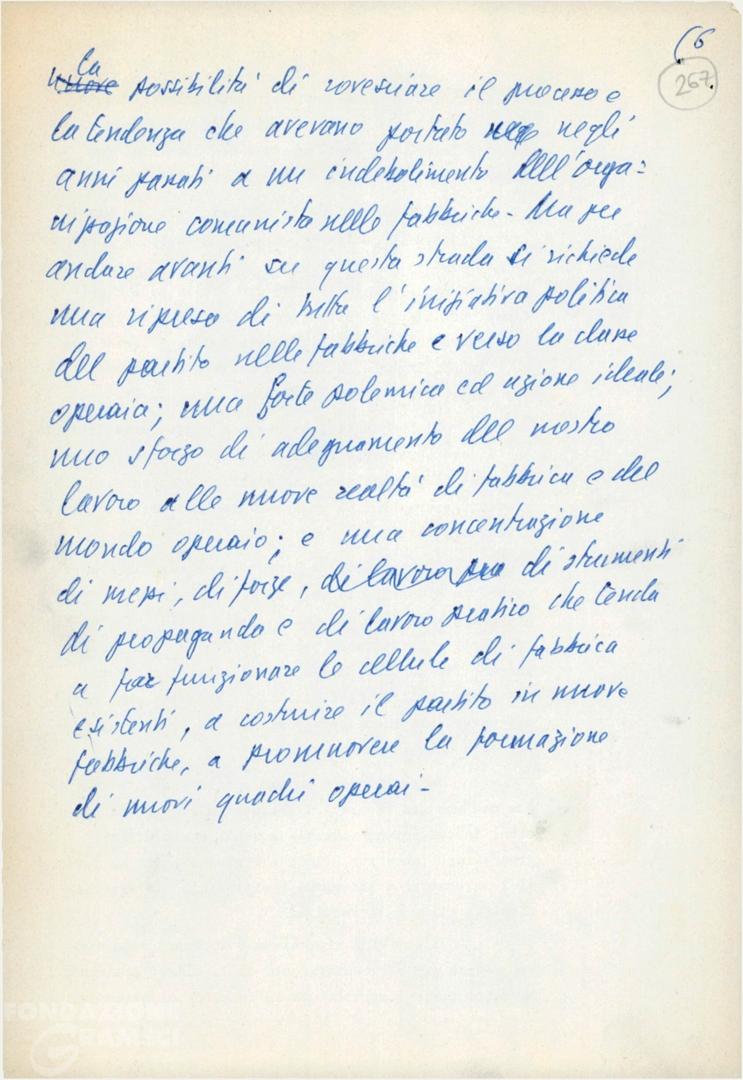 (6
267
la
nuove possibilità di rovesciare il processo e
la tendenza che avevano portato negli
anni passati a un indebolimento dell'orga=
nizzazione comunista nelle fabbriche. Ma per
andare avanti su questa strada si richiede
una ripresa di tutta l'iniziativa politica
del partito nelle fabbriche e verso la classe
operaia; una forte polemica ed azione ideale;
uno sforzo di adeguamento del nostro
lavoro alle nuove realtà di fabbrica e del
mondo operaio; e una concentrazione
di mezzi, di forze, di lavoro di strumenti
di propaganda e di lavoro pratico che tenda
a far funzionare le cellule di fabbrica
esistenti, a costruire il partito in nuove
fabbriche, a promuovere la formazione
di nuovi quadri operai-
FONDAZIONE
GRAMSCI